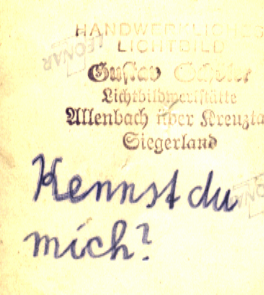 HANDWERKLICHES
LICHTBILD
LEONAR
Gustav
Lichtbildwerkstätte
Allenbach über Kreuzta
Siegerland
Kennst du
mich?